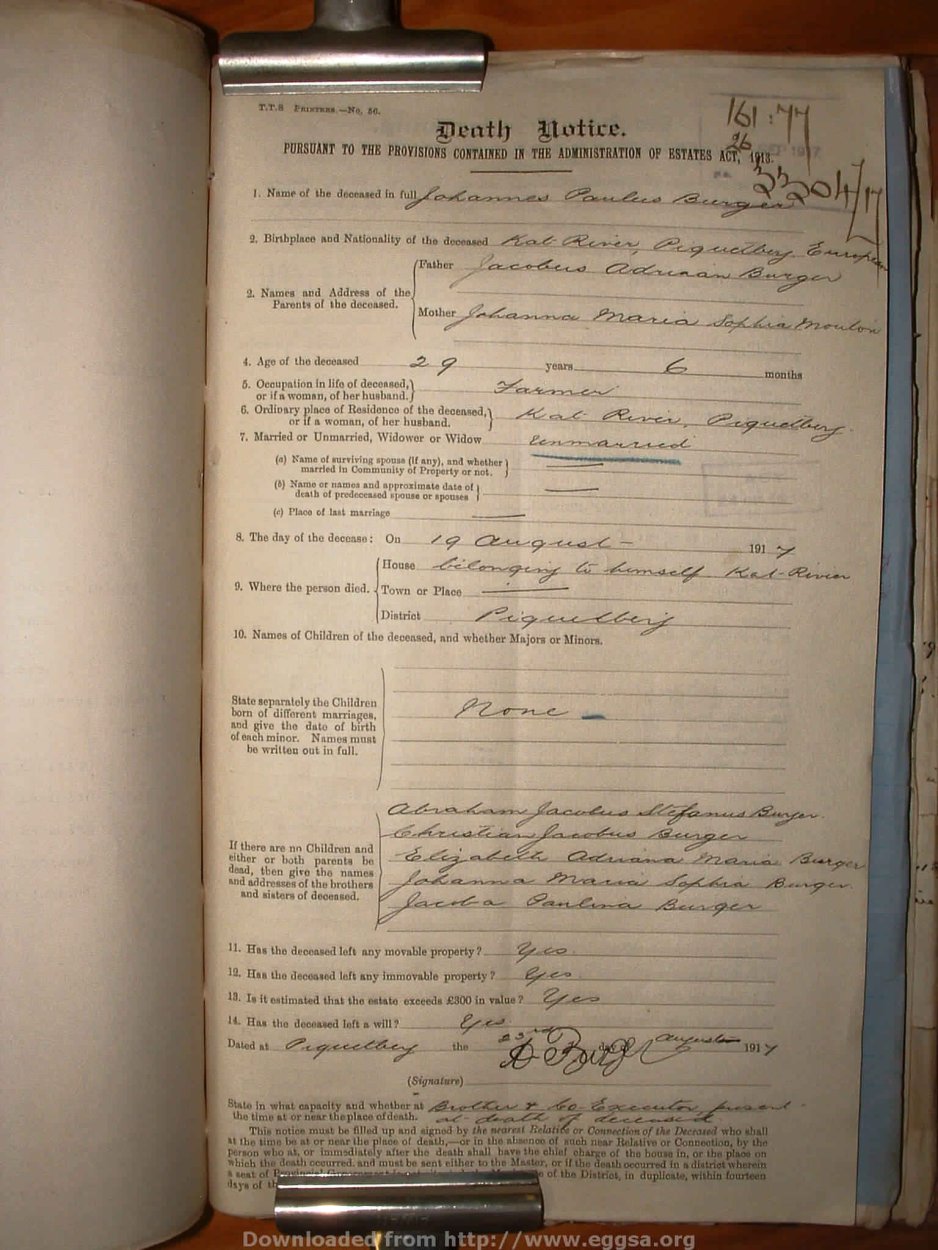 T.T.S PRINTERS.—No. 56.
161:77
Death Notice.
26
PURSUANT TO THE PROVISIONS CONTAINED IN THE ADMINISTRATION OF ESTATES ACT, 1913.
3304/17
1. Name of the deceased in full Johannes Paulus Burger
2. Birthplace and Nationality of the deceased Kat River, Piquetberg European
2. Names and Address of the Parents of the deceased.
Father Jacobus Adriaan Burger
Mother Johanna Maria Sophia Mouton
4. Age of the deceased 29 years 6 months
5. Occupation in life of deceased, or if a woman, of her husband. Farmer
6. Ordinary place of Residence of the deceased, or if a woman, of her husband. Kat River, Piquetberg.
7. Married or Unmarried, Widower or Widow Unmarried
(a) Name of surviving spouse (if any), and whether married in Community of Property or not. —
(b) Name or names and approximate date of death of predeceased spouse or spouses —
(c) Place of last marriage —
8. The day of the decease: On 19 August – 1917
9. Where the person died.
House belonging to himself Kat-River
Town or Place —
District Piquetberg
10. Names of Children of the deceased, and whether Majors or Minors.
State separately the Children
born of different marriages,
and give the date of birth
of each minor. Names must
be written out in full.
None –
If there are no Children and
either or both parents be
dead, then give the names
and addresses of the brothers
and sisters of deceased.
Abraham Jacobus Stefanus Burger.
Christian Jacobus Burger
Elizabeth Adriana Maria Burger
Johanna Maria Sophia Burger.
Jacoba Paulina Burger
11. Has the deceased left any movable property? Yes.
12. Has the deceased left any immovable property? Yes.
13. Is it estimated that the estate exceeds £300 in value? Yes
14. Has the deceased left a will? Yes.
Dated at Piquetberg the 23rd day of August 1917
(Signature)
State in what capacity and whether at the time at or near the place of death. Brother & Co-Executor present at death of deceased
This notice must be filled up and signed by the nearest Relative or Connection of the Deceased who shall
at the time be at or near the place of death,—or in the absence of such near Relative or Connection, by the
person who at, or immediately after the death shall have the chief charge of the house in, or the place on
which the death occurred, and must be sent either to the Master, or if the death occurred in a district wherein
a seat of Provincial Government of the District, in duplicate, within fourteen
days of th
Downloaded from http://www.eggsa.org